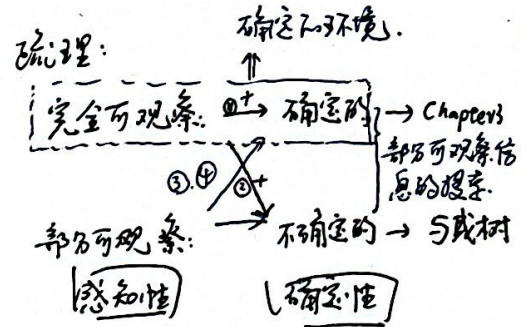 梳理:
确定的环境.
完全可观察: ①+ 确定的 → Chapter3
部分可观察信
息的搜索.
③.④ ②+
部分可观察: 不确定的 → 与或树
感知性 确定性